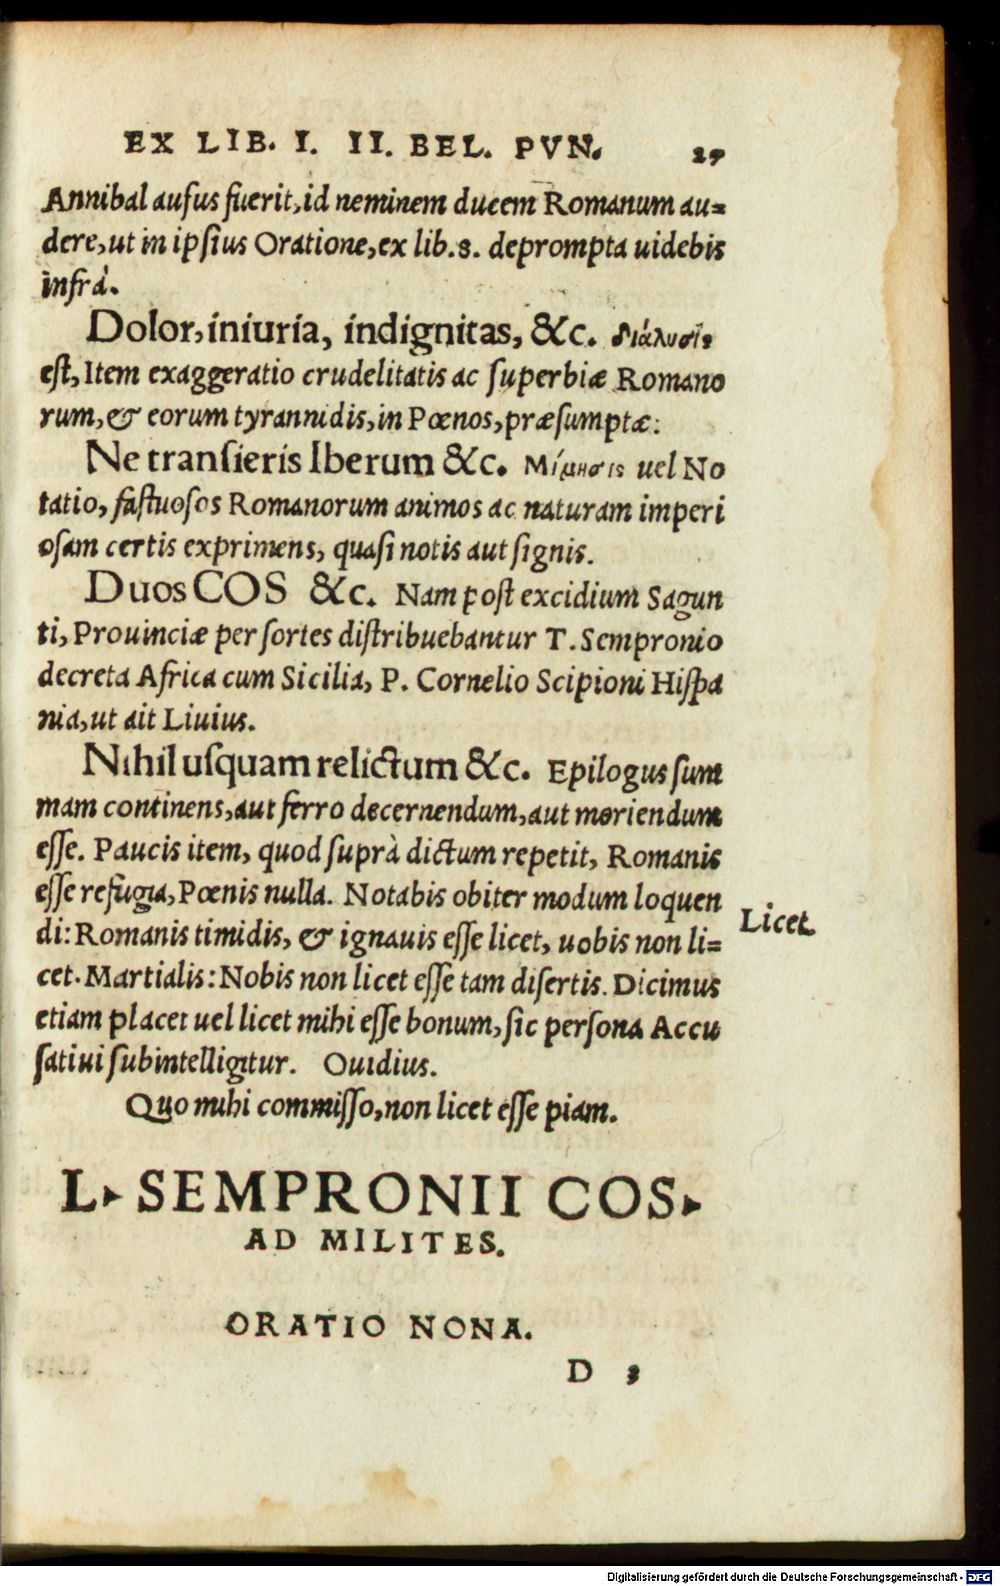 EX LIB. I. II. BEL. PVN. 27
Annibal ausus fuerit, id neminem ducem Romanum au=
dere, ut in ipsius Oratione, ex lib. 8. deprompta uidebis
infrà.
Dolor, iniuria, indignitas, &c. διάλυσις
est, Item exaggeratio crudelitatis ac superbiæ Romano
rum, & eorum tyrannidis, in Pœnos, præsumptæ:
Ne transieris Iberum &c. Μίμησις uel No
tatio, fastuosos Romanorum animos ac naturam imperi
osam certis exprimens, quasi notis aut signis.
Duos COS &c. Nam post excidium Sagun
ti, Prouinciæ per sortes distribuebantur T. Sempronio
decreta Africa cum Sicilia, P. Cornelio Scipioni Hispa
nia, ut ait Liuius.
Nihil usquam relictum &c. Epilogus sum
mam continens, aut ferro decernendum, aut moriendum
esse. Paucis item, quod suprà dictum repetit, Romanis
esse refugia, Pœnis nulla. Notabis obiter modum loquen
di: Romanis timidis, & ignauis esse licet, uobis non li=
Licet
cet. Martialis: Nobis non licet esse tam disertis. Dicimus
etiam placet uel licet mihi esse bonum, sic persona Accu
satiui subintelligitur. Ouidius.
Quo mihi commisso, non licet esse piam.
L. SEMPRONII COS.
AD MILITES.
ORATIO NONA.
D 3
Digitalisierung gefördert durch die Deutsche Forschungsgemeinschaft - DFG